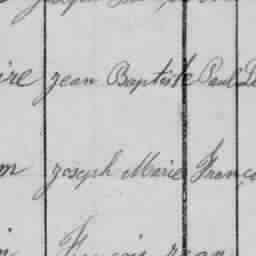 ire jean Baptiste Paul
m joseph Marie Franço
François jean